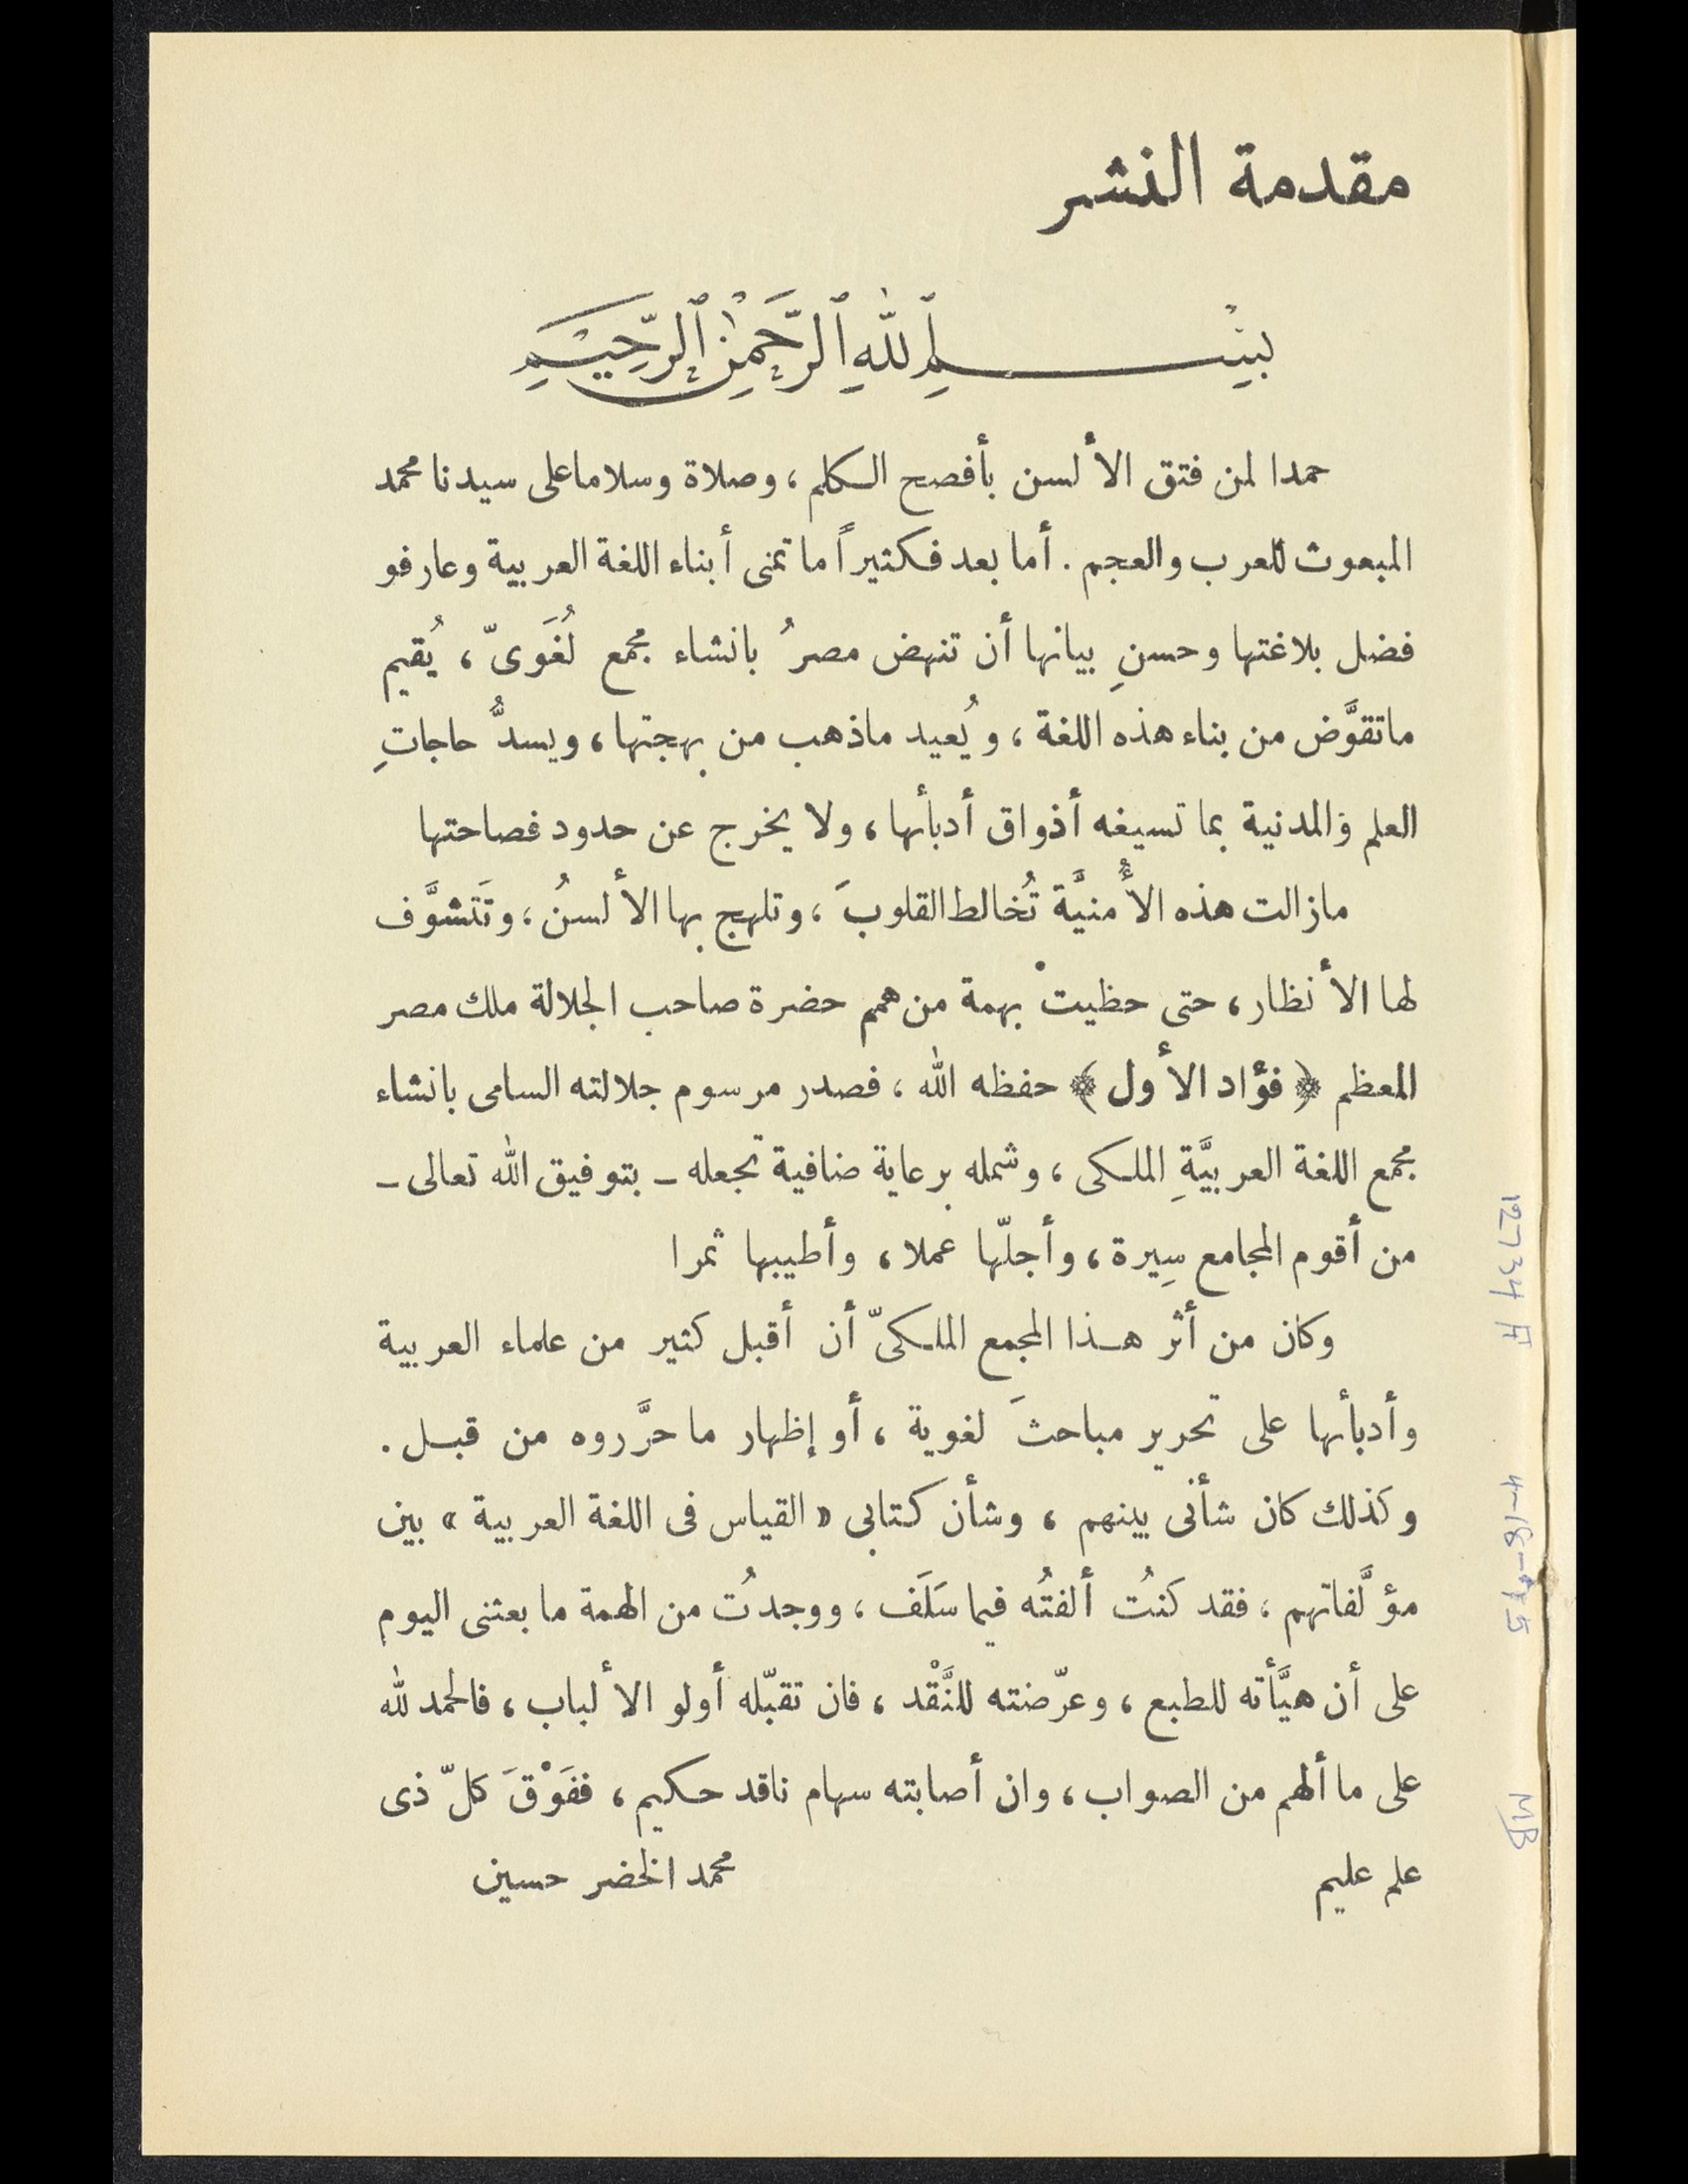 مقدمة النشر
بِسْمِ اللهِ الرَّحْمٰنِ الرَّحِيمِ
حمدا لمن فتق الألسن بأفصح الكلم ، وصلاة وسلاما على سيدنا محمد
المبعوث للعرب والعجم . أما بعد فكثيراً ما تمنى أبناء اللغة العربية وعارفو
فضل بلاغتها وحسنِ بيانها أن تنهض مصرُ بانشاء مجمع لُغَوىّ ، يُقيم
ماتقوَّض من بناء هذه اللغة ، ويُعيد ماذهب من بهجتها ، ويسدُّ حاجاتِ
العلم والمدنية بما تسيغه أذواق أدبأئها ، ولا يخرج عن حدود فصاحتها
مازالت هذه الأُمنيَّة تُخالط القلوبَ ، وتلهج بها الألسنُ ، وتَتشوَّف
لها الأنظار ، حتى حظيتْ بهمة من همم حضرة صاحب الجلالة ملك مصر
المعظم ﴿ فؤاد الأول ﴾ حفظه الله ، فصدر مرسوم جلالته السامى بانشاء
مجمع اللغة العربيَّةِ الملكى ، وشمله برعاية ضافية تجعله ـ بتوفيق الله تعالى ـ
من أقوم المجامع سِيرة ، وأجلّها عملا ، وأطيبها ثمرا
وكان من أثر هذا المجمع الملكىّ أن أقبل كثير من علماء العربية
وأدبأئها على تحرير مباحثَ لغوية ، أو إظهار ما حرَّروه من قبل .
وكذلك كان شأنى بينهم ، وشأن كتابى « القياس فى اللغة العربية » بين
مؤلَّفاتهم ، فقد كنتُ ألفتُه فيما سَلَف ، ووجدتُ من الهمة ما بعثنى اليوم
على أن هيَّأته للطبع ، وعرّضته للنَّقْد ، فان تقبّله أولو الألباب ، فالحمد لله
على ما ألهم من الصواب ، وان أصابته سهام ناقد حكيم ، ففَوْقَ كلّ ذى
علم عليم
محمد الخضر حسين
4-18-75
MB